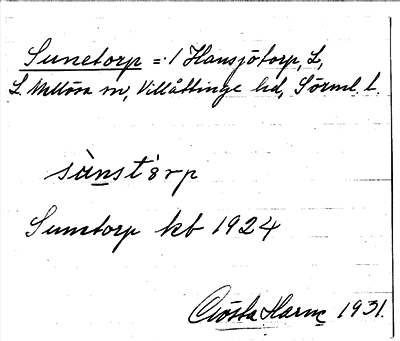 Sunetorp = 1 Hansjötorp, L,
L. Mellösa sn, Villåttinge hd, Sörml. l.
sùnstɵrp
Sunetorp kb 1924
Gösta Harm 1931.